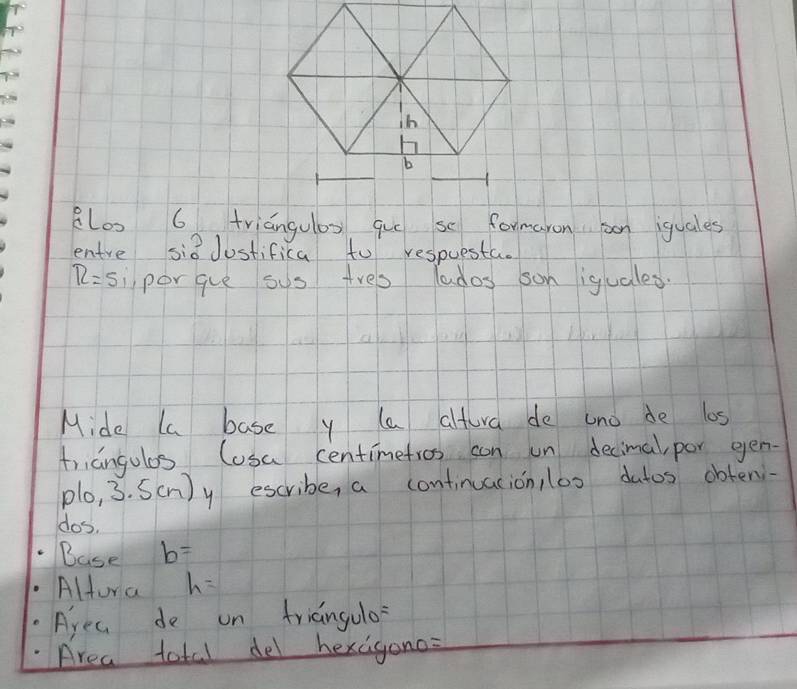 h
b
¿Los 6 triángulos que se formaron son iguales
entre si? Justifica tu respuesta.
R=si, por que sus tres lados son iguales.
Mide la base y la altura de uno de los
triángulos (usa centímetros con un decimal, por ejem-
plo, 3.5cm) y escribe, a continuación, los datos obteni-
dos.
• Base b=
• Altura h=
• Área de un triángulo=
• Área total del hexágono=